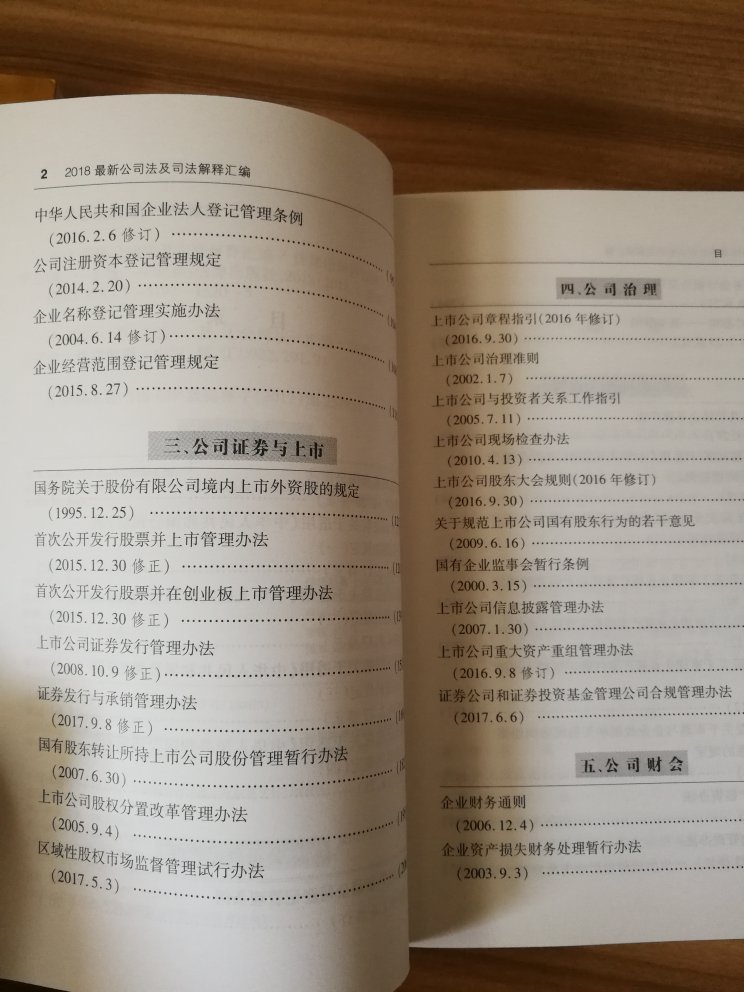 2 2018最新公司法及司法解释汇编
中华人民共和国企业法人登记管理条例
(2016.2.6 修订)
公司注册资本登记管理规定
(2014.2.20)
企业名称登记管理实施办法
(2004.6.14 修订)
企业经营范围登记管理规定
(2015.8.27)
三、公司证券与上市
国务院关于股份有限公司境内上市外资股的规定
(1995.12.25)
首次公开发行股票并上市管理办法
(2015.12.30 修正)
首次公开发行股票并在创业板上市管理办法
(2015.12.30 修正)
上市公司证券发行管理办法
(2008.10.9 修正)
证券发行与承销管理办法
(2017.9.8 修正)
国有股东转让所持上市公司股份管理暂行办法
(2007.6.30)
上市公司股权分置改革管理办法
(2005.9.4)
区域性股权市场监督管理试行办法
(2017.5.3)
目
四、公司治理
上市公司章程指引(2016年修订)
(2016.9.30)
上市公司治理准则
(2002.1.7)
上市公司与投资者关系工作指引
(2005.7.11)
上市公司现场检查办法
(2010.4.13)
上市公司股东大会规则(2016年修订)
(2016.9.30)
关于规范上市公司国有股东行为的若干意见
(2009.6.16)
国有企业监事会暂行条例
(2000.3.15)
上市公司信息披露管理办法
(2007.1.30)
上市公司重大资产重组管理办法
(2016.9.8 修订)
证券公司和证券投资基金管理公司合规管理办法
(2017.6.6)
五、公司财会
企业财务通则
(2006.12.4)
企业资产损失财务处理暂行办法
(2003.9.3)